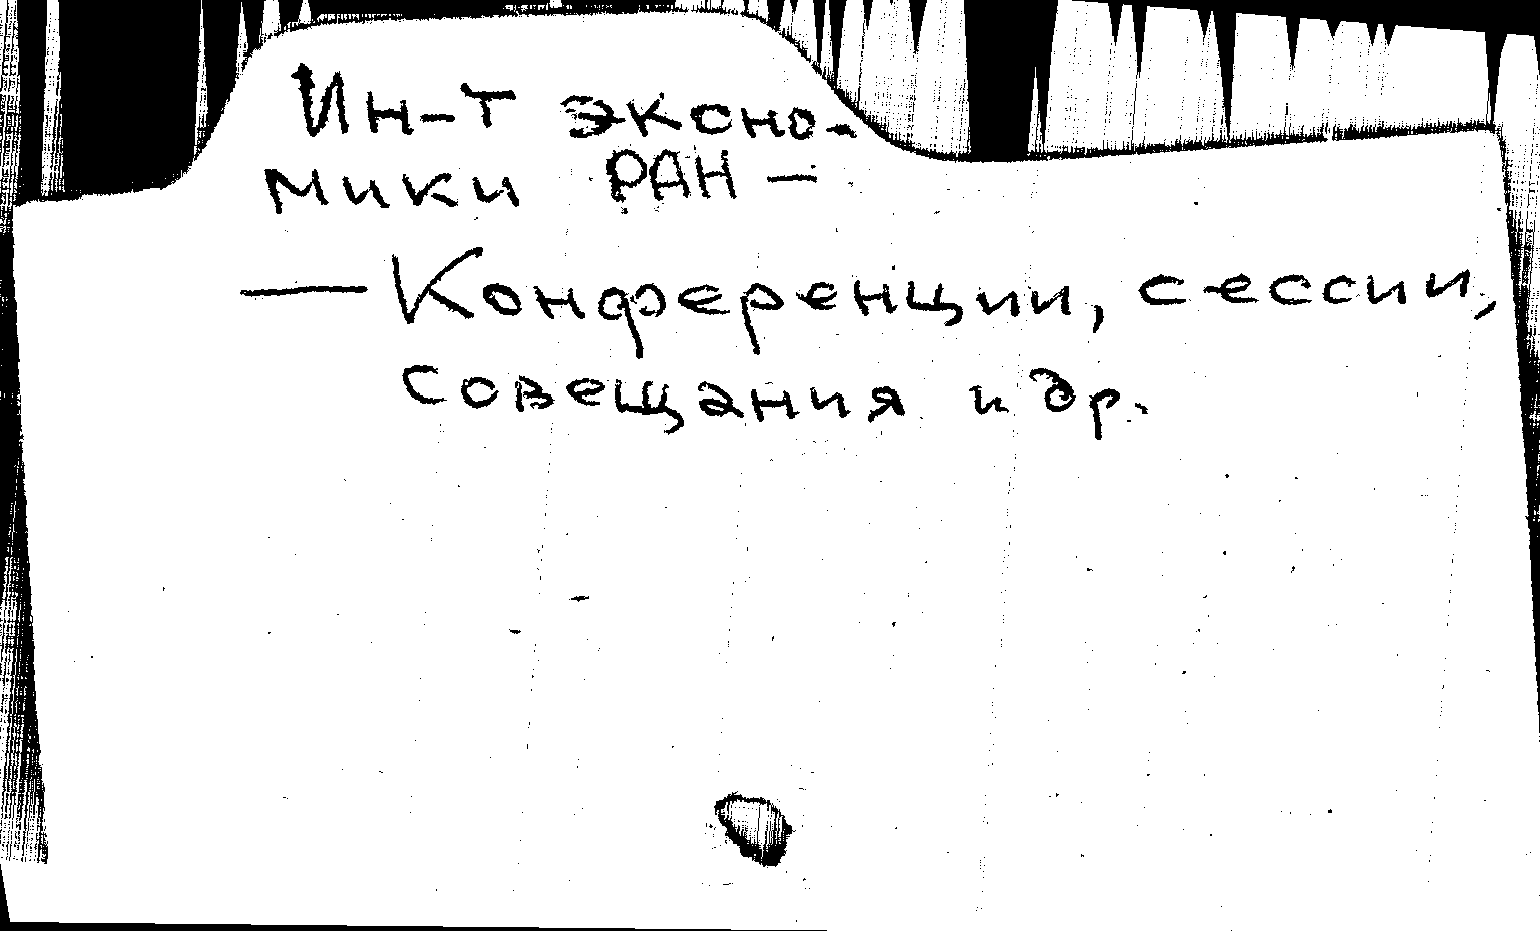 Ин-т эконо-
мики РАН —
— Конференции, сессии,
совещания и др.